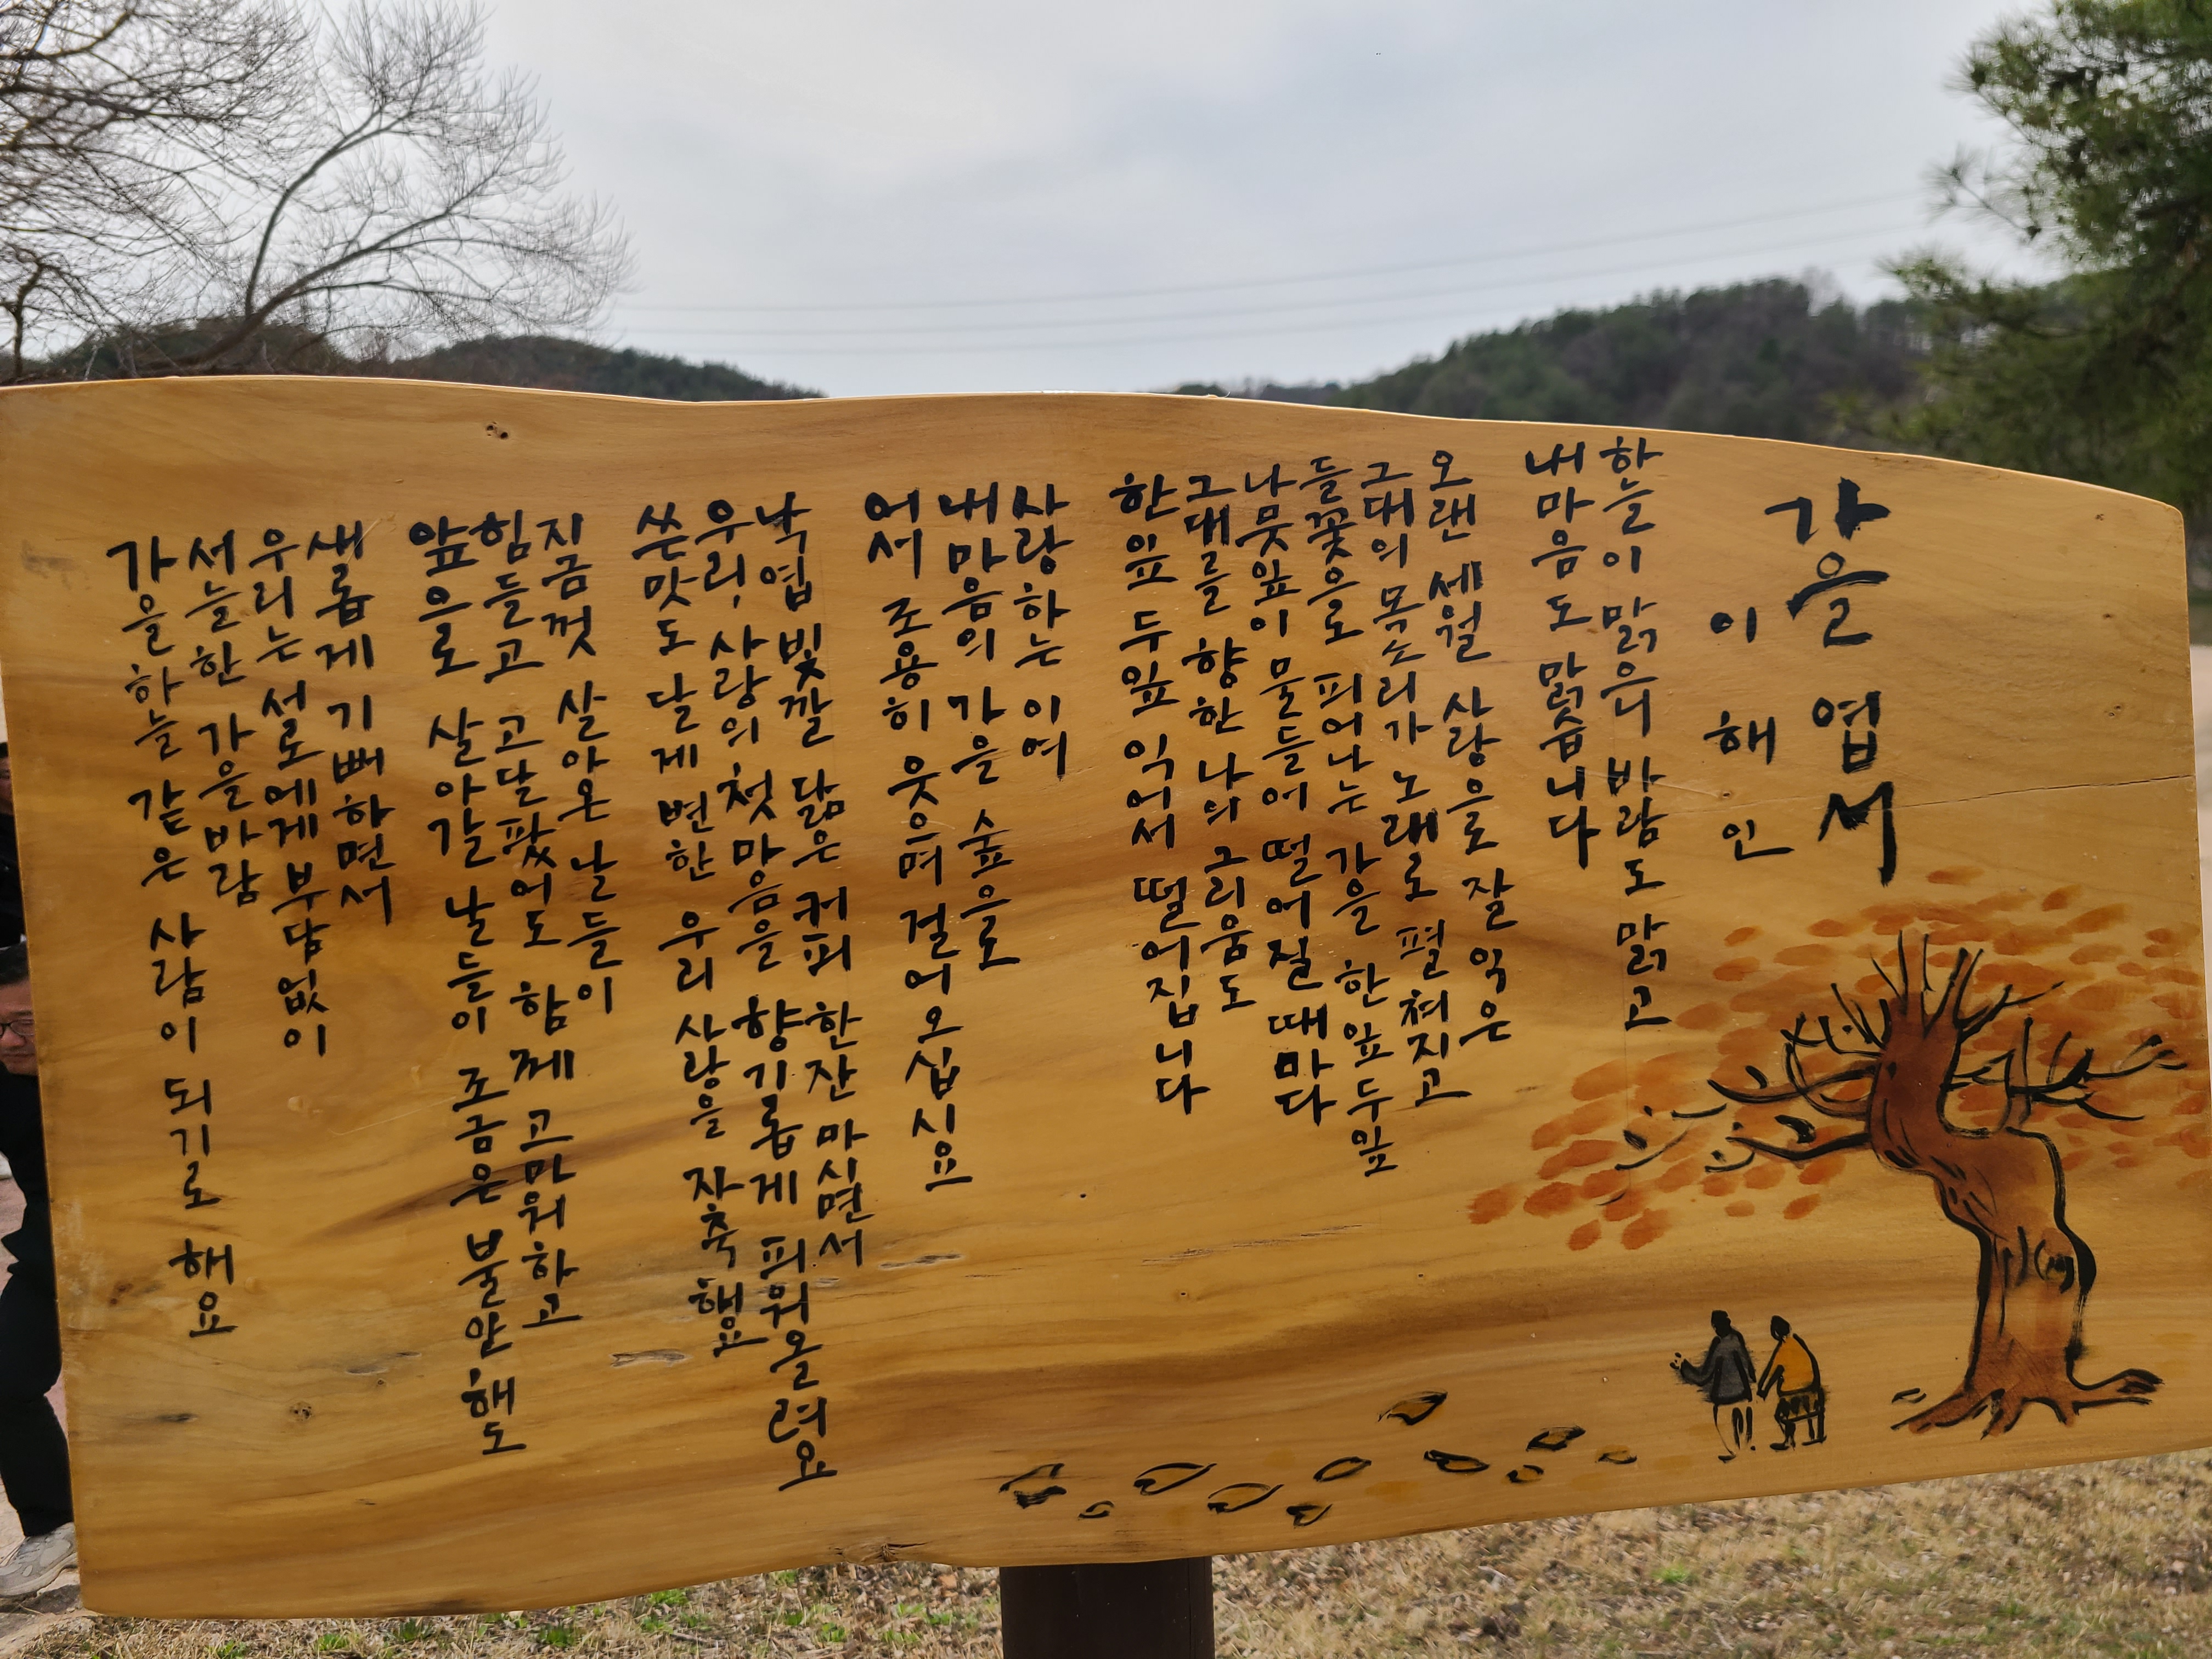 가을 엽서
이해인
하늘이 맑으니 바람도 맑고
내 마음도 맑습니다
오랜 세월 사랑으로 잘 익은
그대의 목소리가 노래로 펼쳐지고
들꽃으로 피어나는 가을 한잎 두잎
나뭇잎이 물들어 떨어질 때마다
그대를 향한 나의 그리움도
한잎 두잎 익어서 떨어집니다
사랑하는 이여
내 마음의 가을 숲으로
어서 조용히 웃으며 걸어오십시요
낙엽 빛깔 닮은 커피 한잔 마시면서
우리, 사랑의 첫 마음을 향기롭게 피워올려요
쓴맛도 달게 변한 우리 사랑을 자축해요
지금껏 살아온 날들이
힘들고 고달팠어도 함께 고마워하고
앞으로 살아갈 날들이 조금은 불안해도
새롭게 기뻐하면서
우리는 서로에게 부담없이
서늘한 가을바람
가을하늘 같은 사람이 되기로 해요